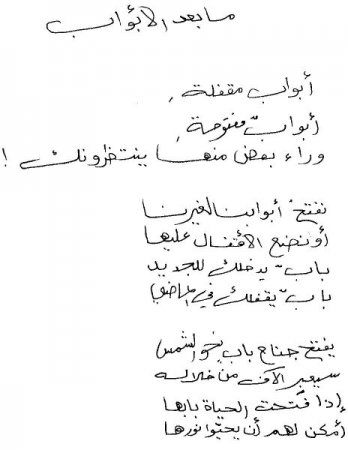 ما بعد الأبواب
أبواب مقفلة,
أبوابٌ مفتوحة,
وراء بعض منها ينتظرونك !
نفتح أبوابنا لغيرنا
أو نضع الأقفال عليها
بابٌ يدخلك للجديد
بابٌ يقفلك في الماضي
يفتح جناح باب نحو الشمس
سيعبر الآلاف من خلاله
إذا فتحت الحياة بابها
أمكن لهم أن يحبّوا نورها